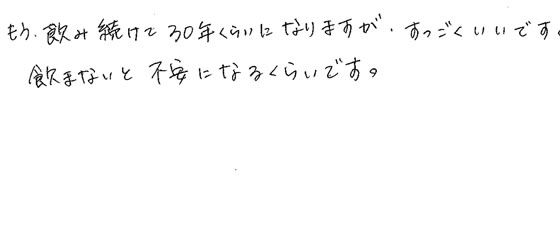 もう、飲み続けて30年くらいになりますが、すっごくいいです。
飲まないと不安になるくらいです。